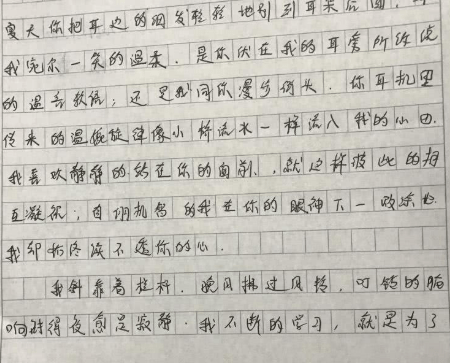 你把耳边的细发轻轻地别到耳朵后面,
我莞尔一笑的温柔.是你伏在我的耳旁所经说
的温言软语;还是我同你漫步街头.你耳机里
传来的温低旋律像小桥流水一样流入我的心田.
我喜欢静静的站在你的面前.,就这样彼此的相
互凝视;自认机智的我在你的眼神下一败涂地
我却始终读不透你的心.
我斜靠着栏杆.晚风拂过风铃,叮铃的脑
响铃得夜愈是寂静.我不断的学习,就是为了